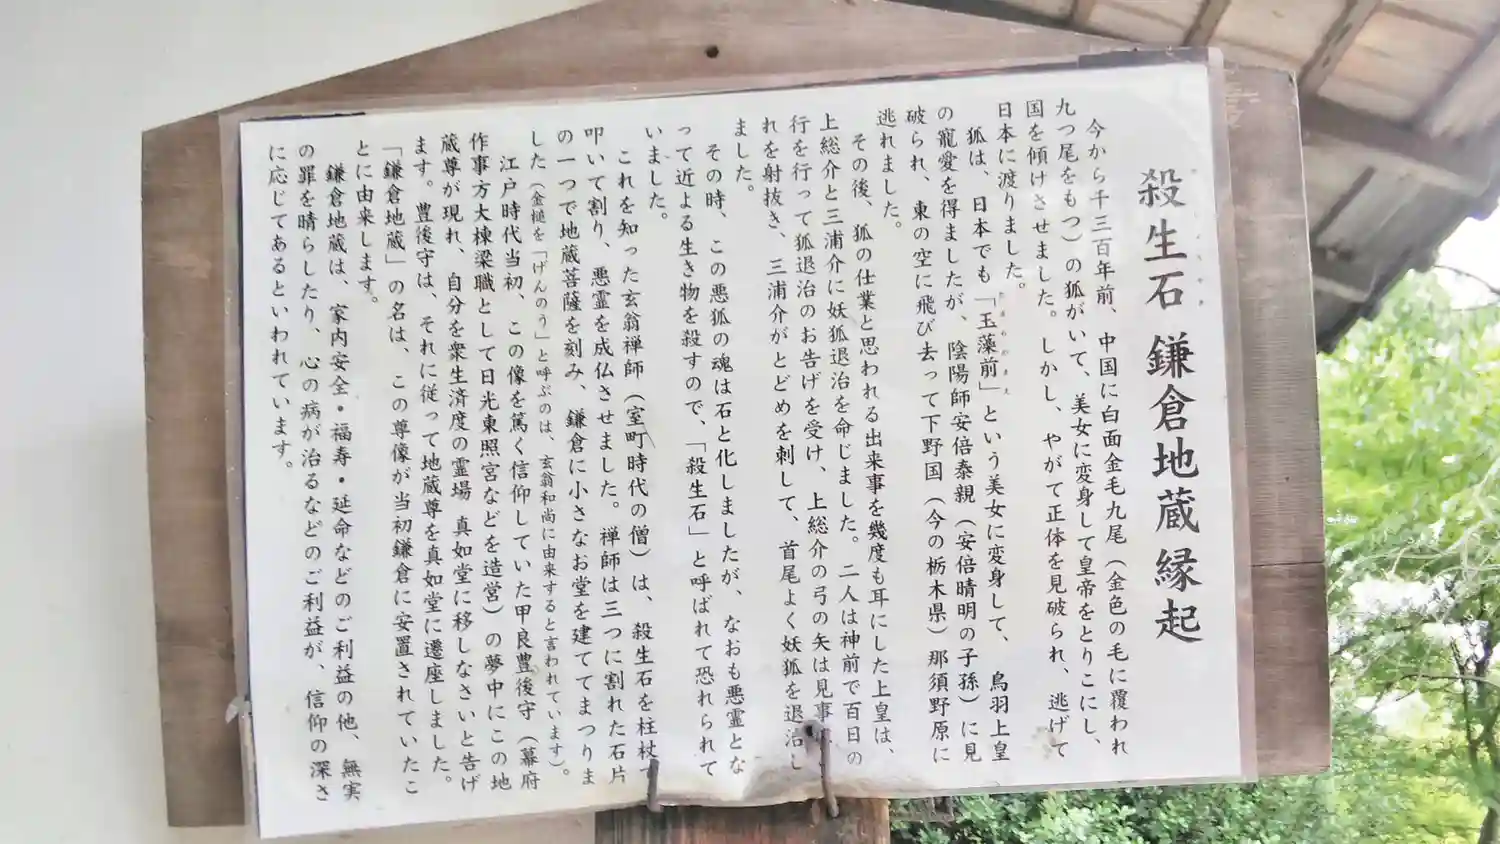 殺生石 鎌倉地蔵縁起
今から千三百年前、中国に白面金毛九尾（金色の毛に覆われ
九つ尾をもつ）の狐がいて、美女に変身して皇帝をとりこにし、
国を傾けさせました。しかし、やがて正体を見破られ、逃げて
日本に渡りました。
狐は、日本でも「玉藻前」という美女に変身して、鳥羽上皇
の寵愛を得ましたが、陰陽師安倍泰親（安倍晴明の子孫）に見
破られ、東の空に飛び去って下野国（今の栃木県）那須野原に
逃れました。
その後、狐の仕業と思われる出来事を幾度も耳にした上皇は、
上総介と三浦介に妖狐退治を命じました。二人は神前で百日の
行を行って狐退治のお告げを受け、上総介の弓の矢は見事
れを射抜き、三浦介がとどめを刺して、首尾よく妖狐を退治し
ました。
その時、この悪狐の魂は石と化しましたが、なおも悪霊とな
って近よる生き物を殺すので、「殺生石」と呼ばれて恐れられて
いました。
これを知った玄翁禅師（室町時代の僧）は、殺生石を柱杖で
叩いて割り、悪霊を成仏させました。禅師は三つに割れた石片
の一つで地蔵菩薩を刻み、鎌倉に小さなお堂を建ててまつりま
した（金槌を「げんのう」と呼ぶのは、玄翁和尚に由来すると言われています）。
江戸時代当初、この像を篤く信仰していた甲良豊後守（幕府
作事方大棟梁職として日光東照宮などを造営）の夢中にこの地
蔵尊が現れ、自分を衆生済度の霊場 真如堂に移しなさいと告げ
ます。豊後守は、それに従って地蔵尊を真如堂に遷座しました。
「鎌倉地蔵」の名は、この尊像が当初鎌倉に安置されていたこ
とに由来します。
鎌倉地蔵は、家内安全・福寿・延命などのご利益の他、無実
の罪を晴らしたり、心の病が治るなどのご利益が、信仰の深さ
に応じてあるといわれています。